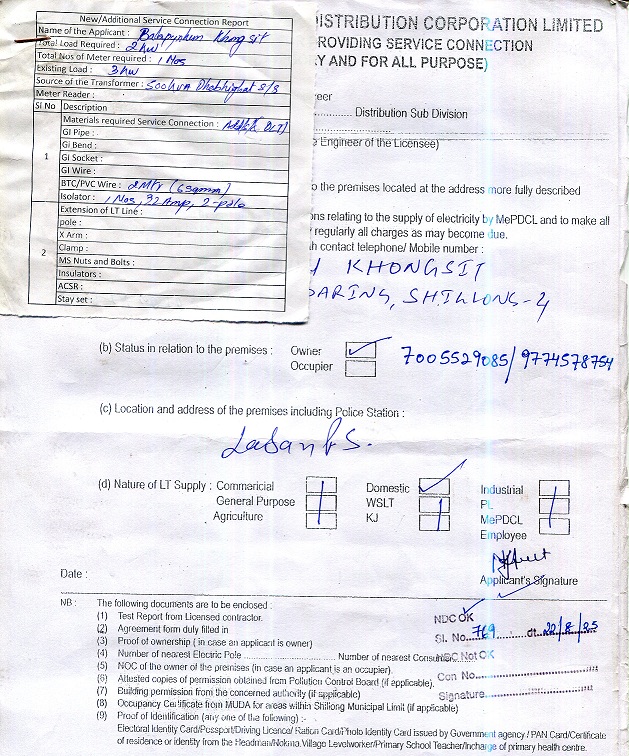 New/Additional Service Connection Report
Name of the Applicant : Balapynkum Khongsit
Total Load Required : 2 kw
Total Nos of Meter required : 1 Nos
Existing Load : 3 kw
Source of the Transformer : Dhobighat S/S
Meter Reader :
Sl No Description
Materials required Service Connection :
GI Pipe :
GI Bend :
1 GI Socket :
GI Wire :
BTC/PVC Wire : 2Mtr (6 sqmm)
Isolator : 1 Nos, 32 Amp, 2-pole
Extension of LT Line :
pole :
X Arm :
2 Clamp :
MS Nuts and Bolts :
Insulators :
ACSR :
Stay set :
ISTRIBUTION CORPORATION LIMITED
PROVIDING SERVICE CONNECTION
Y AND FOR ALL PURPOSE)
eer
Distribution Sub Division
e Engineer of the Licensee)
o the premises located at the address more fully described
ns relating to the supply of electricity by MePDCL and to make all
regularly all charges as may become due.
h contact telephone/ Mobile number :
H KHONGSIT
DARING, SHILLONG-4
(b) Status in relation to the premises : Owner
Occupier
7005529085/9774578754
(c) Location and address of the premises including Police Station :
Laban P.S.
(d) Nature of LT Supply : Commericial Domestic Industrial
General Purpose WSLT PL
Agriculture KJ MePDCL
Employee
Applicant's Signature
Date :
NB : The following documents are to be enclosed :
(1) Test Report from Licensed contractor.
(2) Agreement form duly filled in
(3) Proof of ownership ( in case an applicant is owner)
(4) Number of nearest Electric Pole ........ Number of nearest Consumer
(5) NOC of the owner of the premises (in case an applicant is an occupier).
(6) Attusted copies of permission obtained from Pollution Control Board (if applicable).
(7) Building permission from the concerned authority (if applicable)
(8) Occupancy Certificate from MUDA for areas within Shillong Municipal Limit (if applicable)
(9) Proof of Identification (any one of the following) :-
Electoral Identity Card/Passport/Driving Licence/ Ration Card/Photo Identity Card issued by Government agency / PAN Card/Certificate
of residence or identity from the Headman/Nokma Village Levelworker/Primary School Teacher/Incharge of primary health centre.
NDC OK
Sl. No. 769 dt. 22/8/25
NDC Not OK
Con No.
Signature